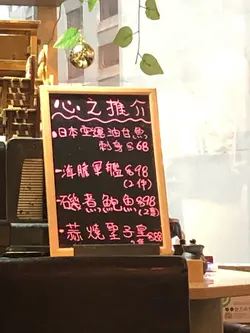 心之推介
•日本空運油甘魚
刺身$68
•海膽軍艦$98
(2件)
•磯煮鮑魚$98(2隻)
•蒜燒聖子皇$88